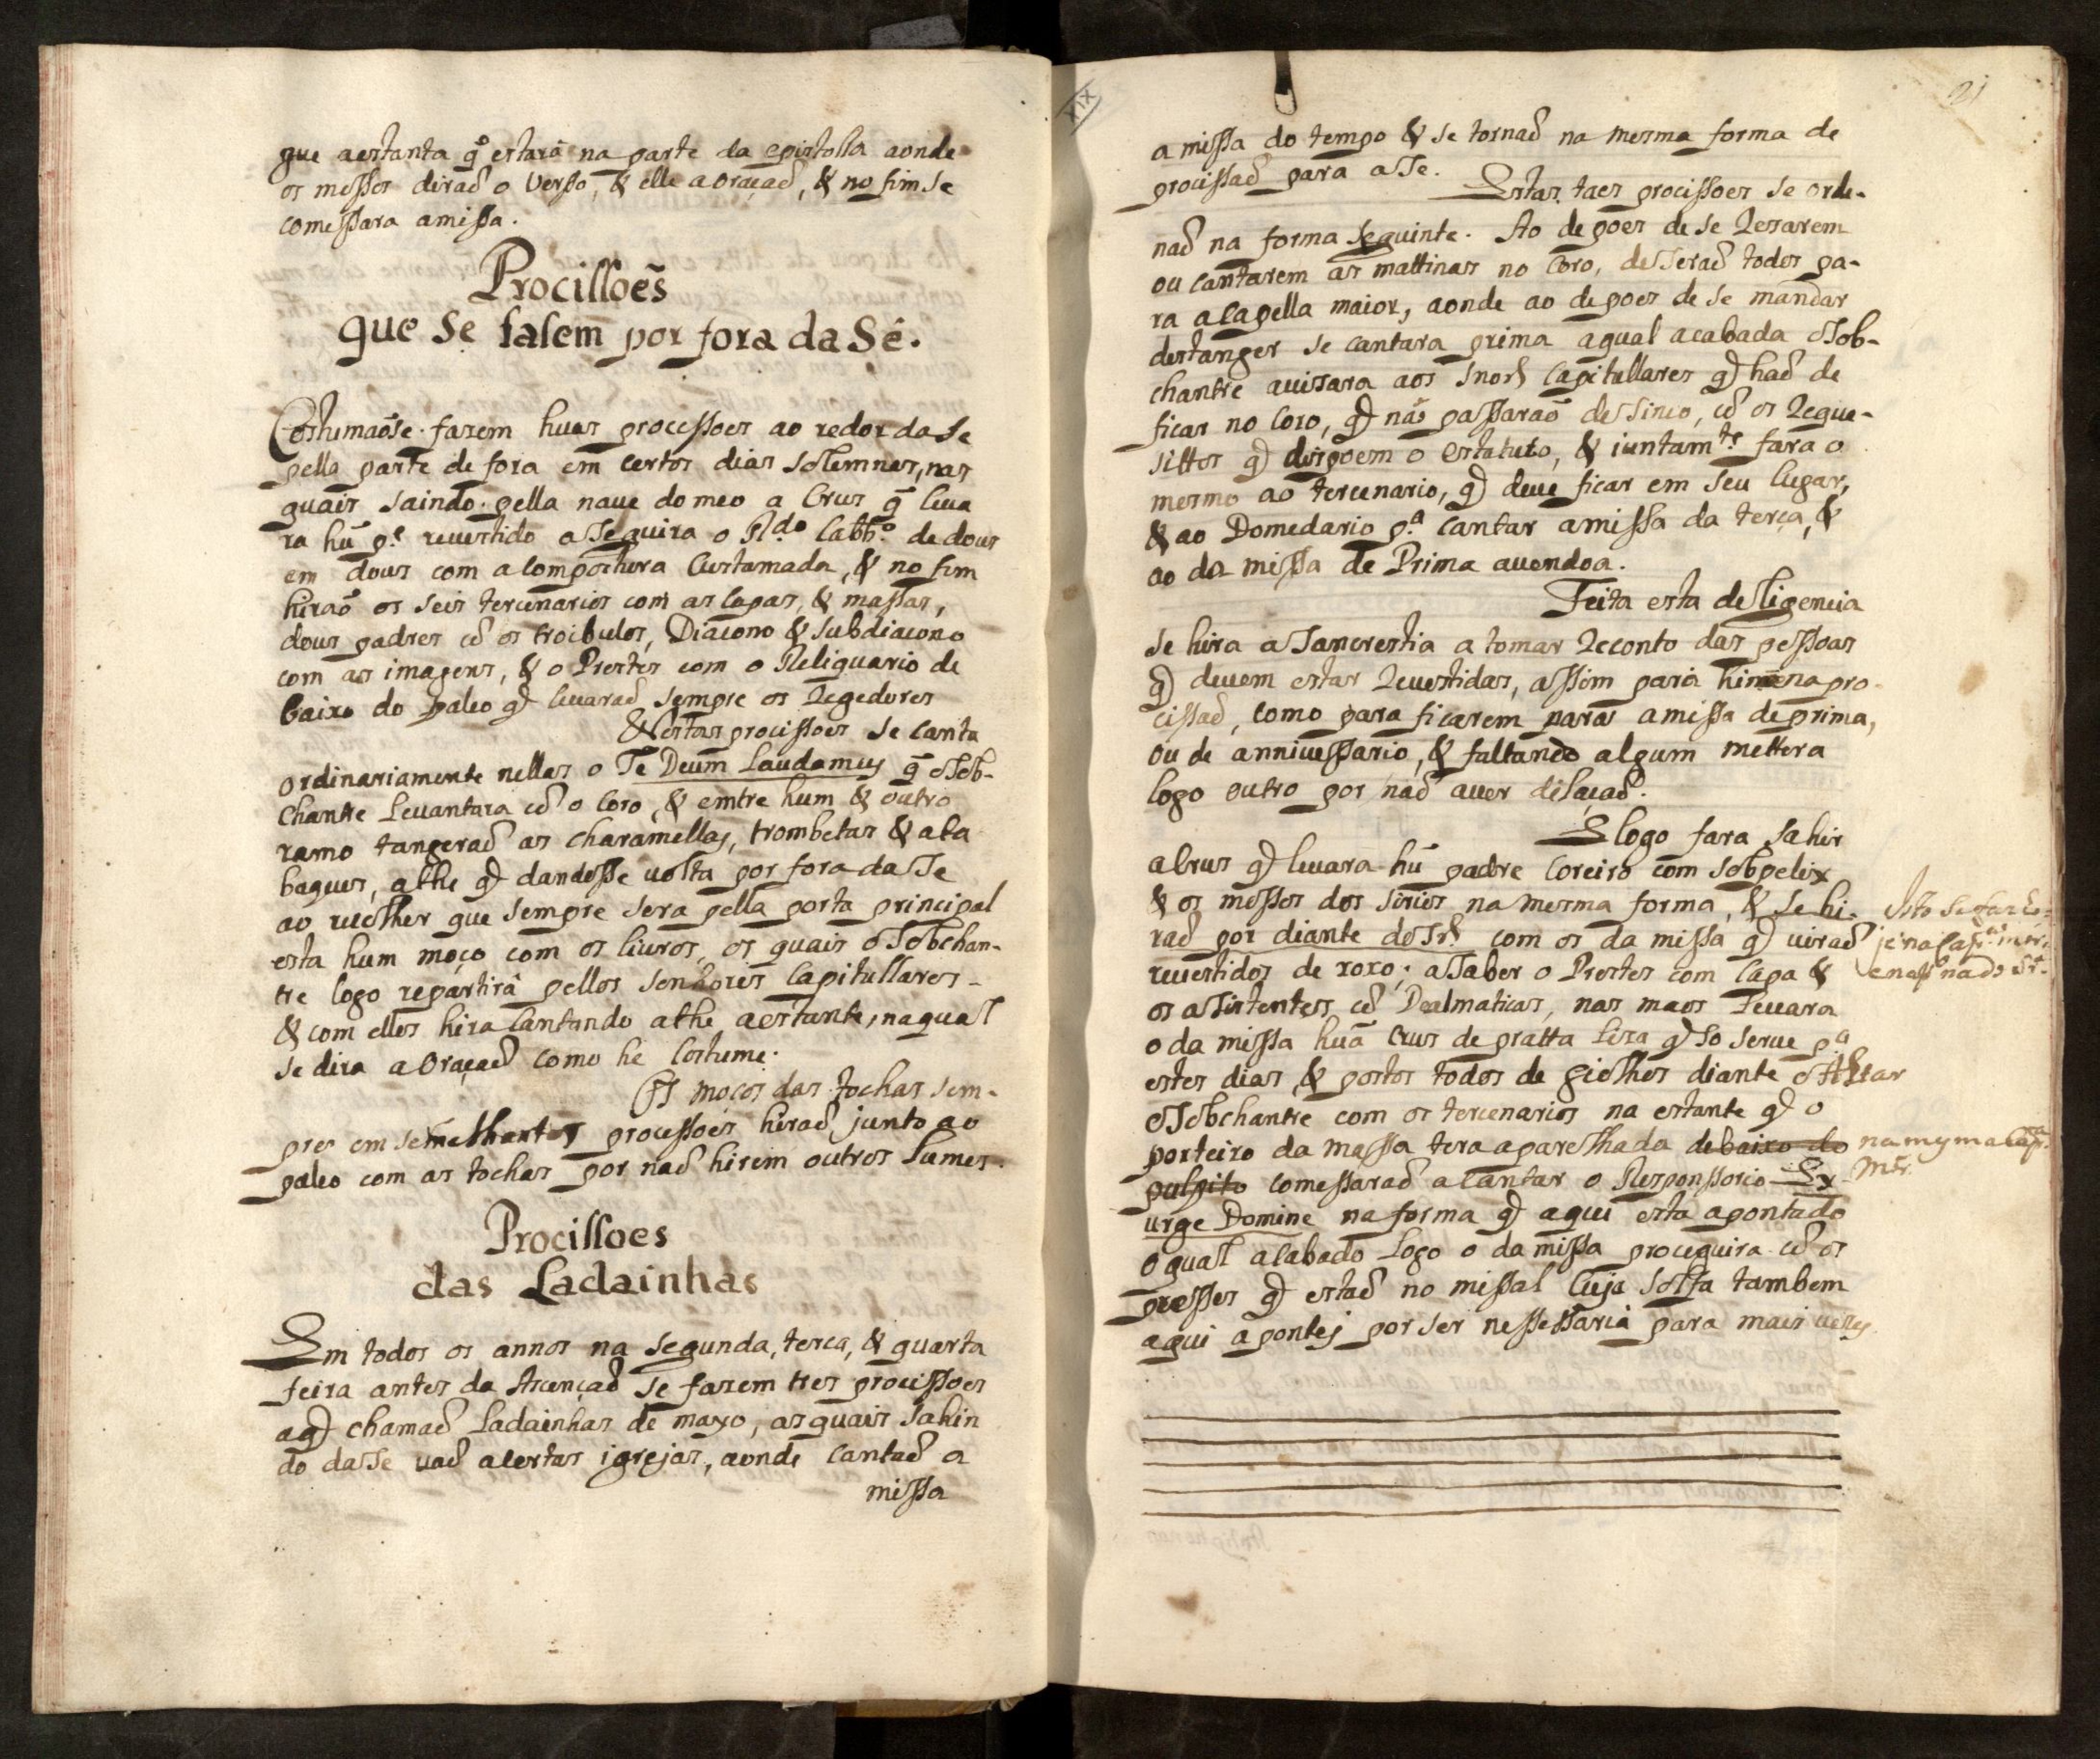 que aestanta q̃ estará na parte da epistolla aonde
os mossos diraõ o Verso, & elle a oraçaõ, & no fim se
comessara amissa.
Procissoẽs
que se fasem por fora da Sé.
Costumaõse fazem huas procissoes ao redor da Se
pella parte de fora em certos dias solemnes, nas
quais saindo pella naue do meo a Crus q̃ leua
ra hũ p.e reuestido a seguira o R.do Cabb.o de dous
em dous com a compostura Custamada, & no fim
hiraõ os seis tercenarios com as capas, & massas,
dous padres cõ os troibulos, Diacono & subdiacono
com as imagens, & o Prestes com o Reliquario de
baixo do paleo q̃ leuaraõ sempre os Regedores
Nestas procissoes se canta
ordinariamente nellas o Te Deum Laudamus q̃ o Sob-
chantre Leuantara cõ o Coro, & emtre hum & outro
ramo tangeraõ as charamellas, trombetas & ata
baques, athe q̃ dandosse uolta por fora da Se
ao recolher que sempre sera pella porta principal
esta hum moço com os liuros, os quais o Sobchan-
tre logo repartirá pellos senhores Capitullares -
& com elles hira Cantando athe aestante, na qual
se dira a Oraçaõ como he Costume.
Os moços das tochas sem-
pre em semelhantes procissoes hiraõ junto ao
paleo com as tochas por naõ hirem outros lumes.
Procissoes
das Ladainhas
Em todos os annos na segunda, terca, & quarta
feira antes da Ascençaõ se fazem tres procissoes
a q̃ chamaõ Ladainhas de mayo, as quais sahin
do da Se uaõ acertas igrejas, aonde cantaõ a
missa
XIX
21
a missa do tempo & se tornaõ na mesma forma de
procissaõ para a Se.
Estas taes procissoes se orde-
naõ na forma seguinte. Ao depoes de se Rezarem
ou cantarem as mattinas no Coro, desseraõ todos pa-
ra a capella maior, aonde ao depoes de se mandar
destanger se cantara prima aqual acabada o Sob-
chantre auissara aos Snor̃s Capitullares q̃ haõ de
ficar no Coro, q̃ naõ passaraõ des sinco, cõ os Reque-
sittos q̃ dispoem o estatuto, & iuntam.te fara o
mesmo ao tercenario, q̃ deue ficar em seu lugar,
& ao Domedario p.a cantar amissa da terça, &
ao da missa de Prima auendoa.
Feita esta desligencia
se hira a Sancrestia a tomar Reconto das pessoas
q̃ deuem estar Reuestidas, assim para hirem na pro-
cissaõ, como para ficarem para amissa de prima,
ou de anniuessario, & faltando algum mettera
logo outro por naõ auer dilaçaõ.
E logo fara sahir
a Crus q̃ leuara hũ padre Coreiro com sobpelix
& os mossos dos sirios na mesma forma, & se hi-
raõ por diante do Sr̃ com os da missa q̃ uiraõ
reuestidos de roxo; a saber o Prestes com Capa &
os asistentes cõ Dealmaticas, nas maos Leuara
o da missa huã Crus de pratta Liza q̃ so serue p.a
estes dias, & postos todos de giolhos diante o Altar
o Sobchantre com os tercenarios na estante q̃ o
porteiro da massa tera aparelhada debaixo do
pulpito comessaraõ a cantar o Responssorio Ex
urge Domine na forma q̃ aqui esta apontado
o qual acabado logo o da missa proceguira cõ os
presses q̃ estaõ no missal Cuja solfa tambem
aqui apontej por ser nessessaria para mais uezes
Isto se faz ho-
je na cap.a mor,
na mesma Cap.
Mor.